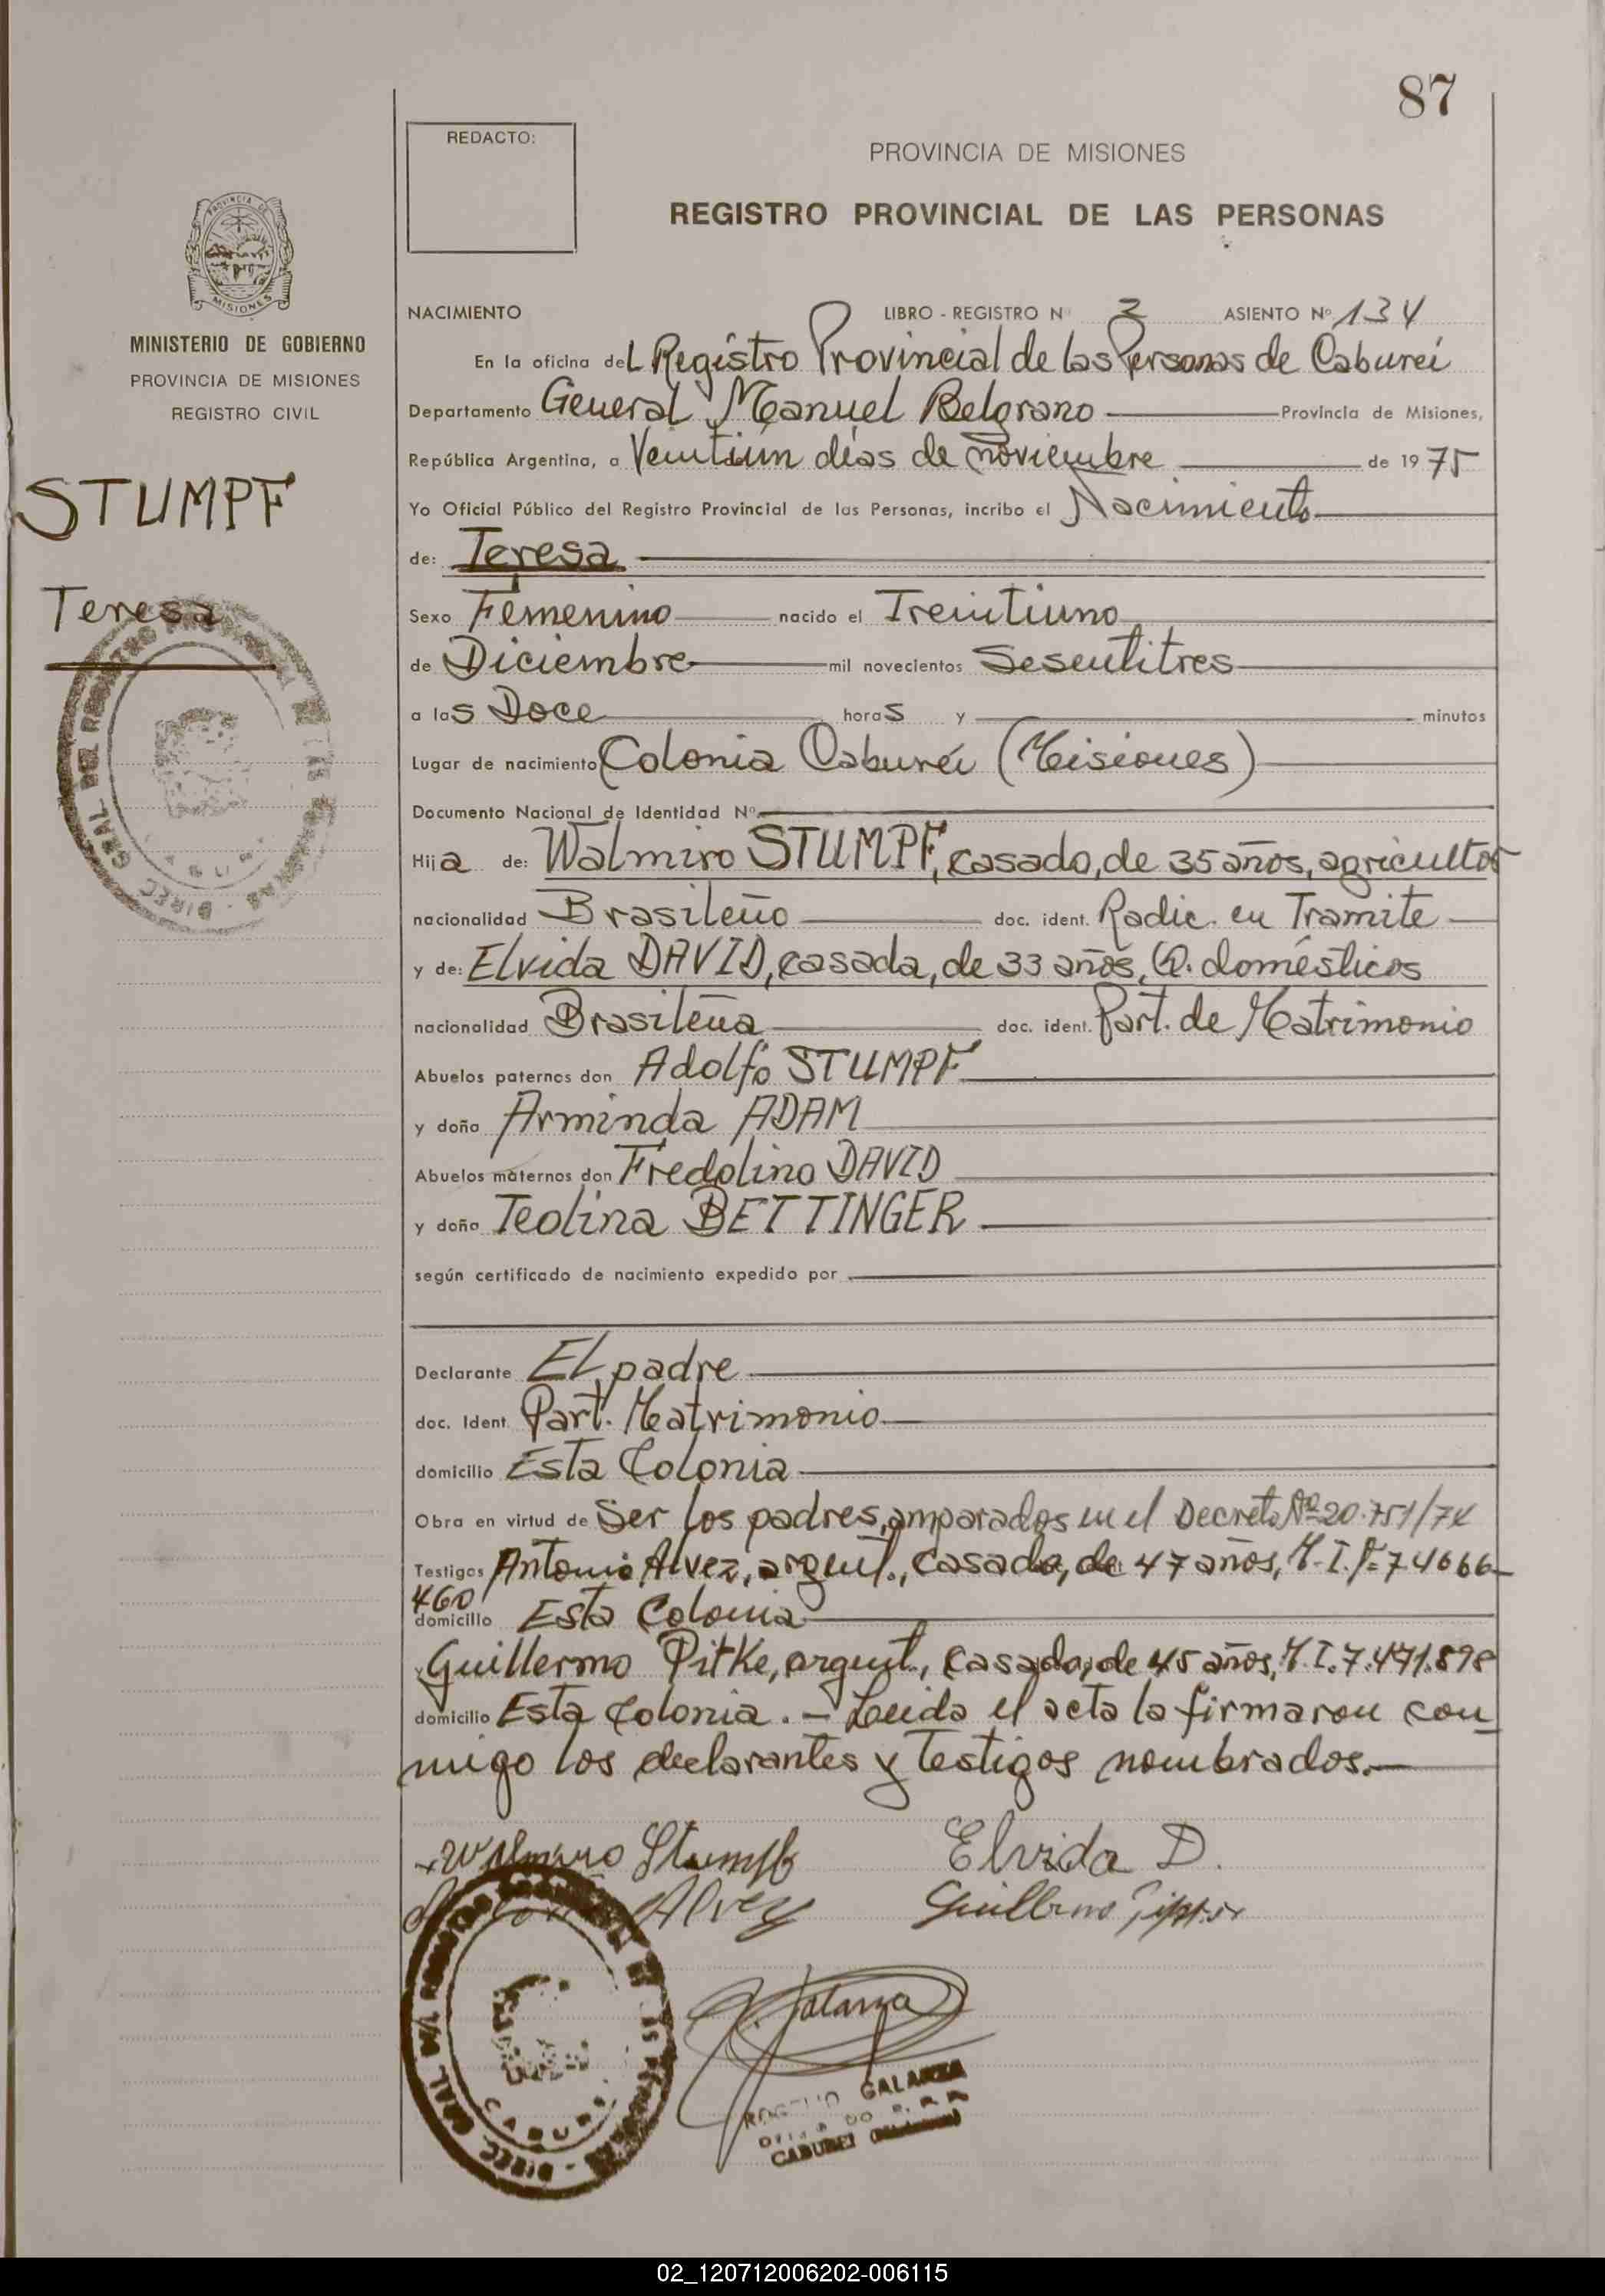 87
REDACTO:
PROVINCIA DE MISIONES
REGISTRO PROVINCIAL DE LAS PERSONAS
PROVINCIA DE
MISIONES
MINISTERIO DE GOBIERNO
PROVINCIA DE MISIONES
REGISTRO CIVIL
STUMPF
Teresa
NACIMIENTO LIBRO - REGISTRO N 2 ASIENTO Nº 134
En la oficina del Registro Provincial de las Personas de Caburei
Departamento General Manuel Belgrano Provincia de Misiones,
República Argentina, a Veintiún días de noviembre de 1975
Yo Oficial Público del Registro Provincial de las Personas, incribo el Nacimiento
de: Teresa
Sexo Femenino nacido el Treintiuno
de Diciembre mil novecientos Sesentitres
a las Doce horas y minutos
Lugar de nacimiento Colonia Caburéi (Misiones)
Documento Nacional de Identidad Nº
Hija de: Walmiro STUMPF, casado, de 35 años, agricultor
nacionalidad Brasileño doc. ident. Radic. en Tramite
y de: Elvida DAVID, casada, de 33 años, Q. domésticos
nacionalidad Brasileña doc. ident. Part. de Matrimonio
Abuelos paternos don Adolfo STUMPF
y doña Arminda ADAM
Abuelos maternos don Fredolino DAVID
y doña Teolina BETTINGER
según certificado de nacimiento expedido por
Declarante El padre
doc. Ident. Part. Matrimonio
domicilio Esta Colonia
Obra en virtud de Ser los padres, amparados en el Decreto Nº 20.751/74
Testigos Antonio Alvez, argent., casado, de 47 años, M.I. Nº 74066-
460
domicilio Esta Colonia
y Guillermo Pitke, argent., casado, de 45 años, M.I. 7.471.898
domicilio Esta Colonia. - Leida el acta la firmaron con
migo los declarantes y testigos nombrados.-
Walmiro Stumpf Elvida D.
Alvez Guillermo
Galarza
ROGELIO GALARZA
CABUREI (Misiones)
02_120712006202-006115